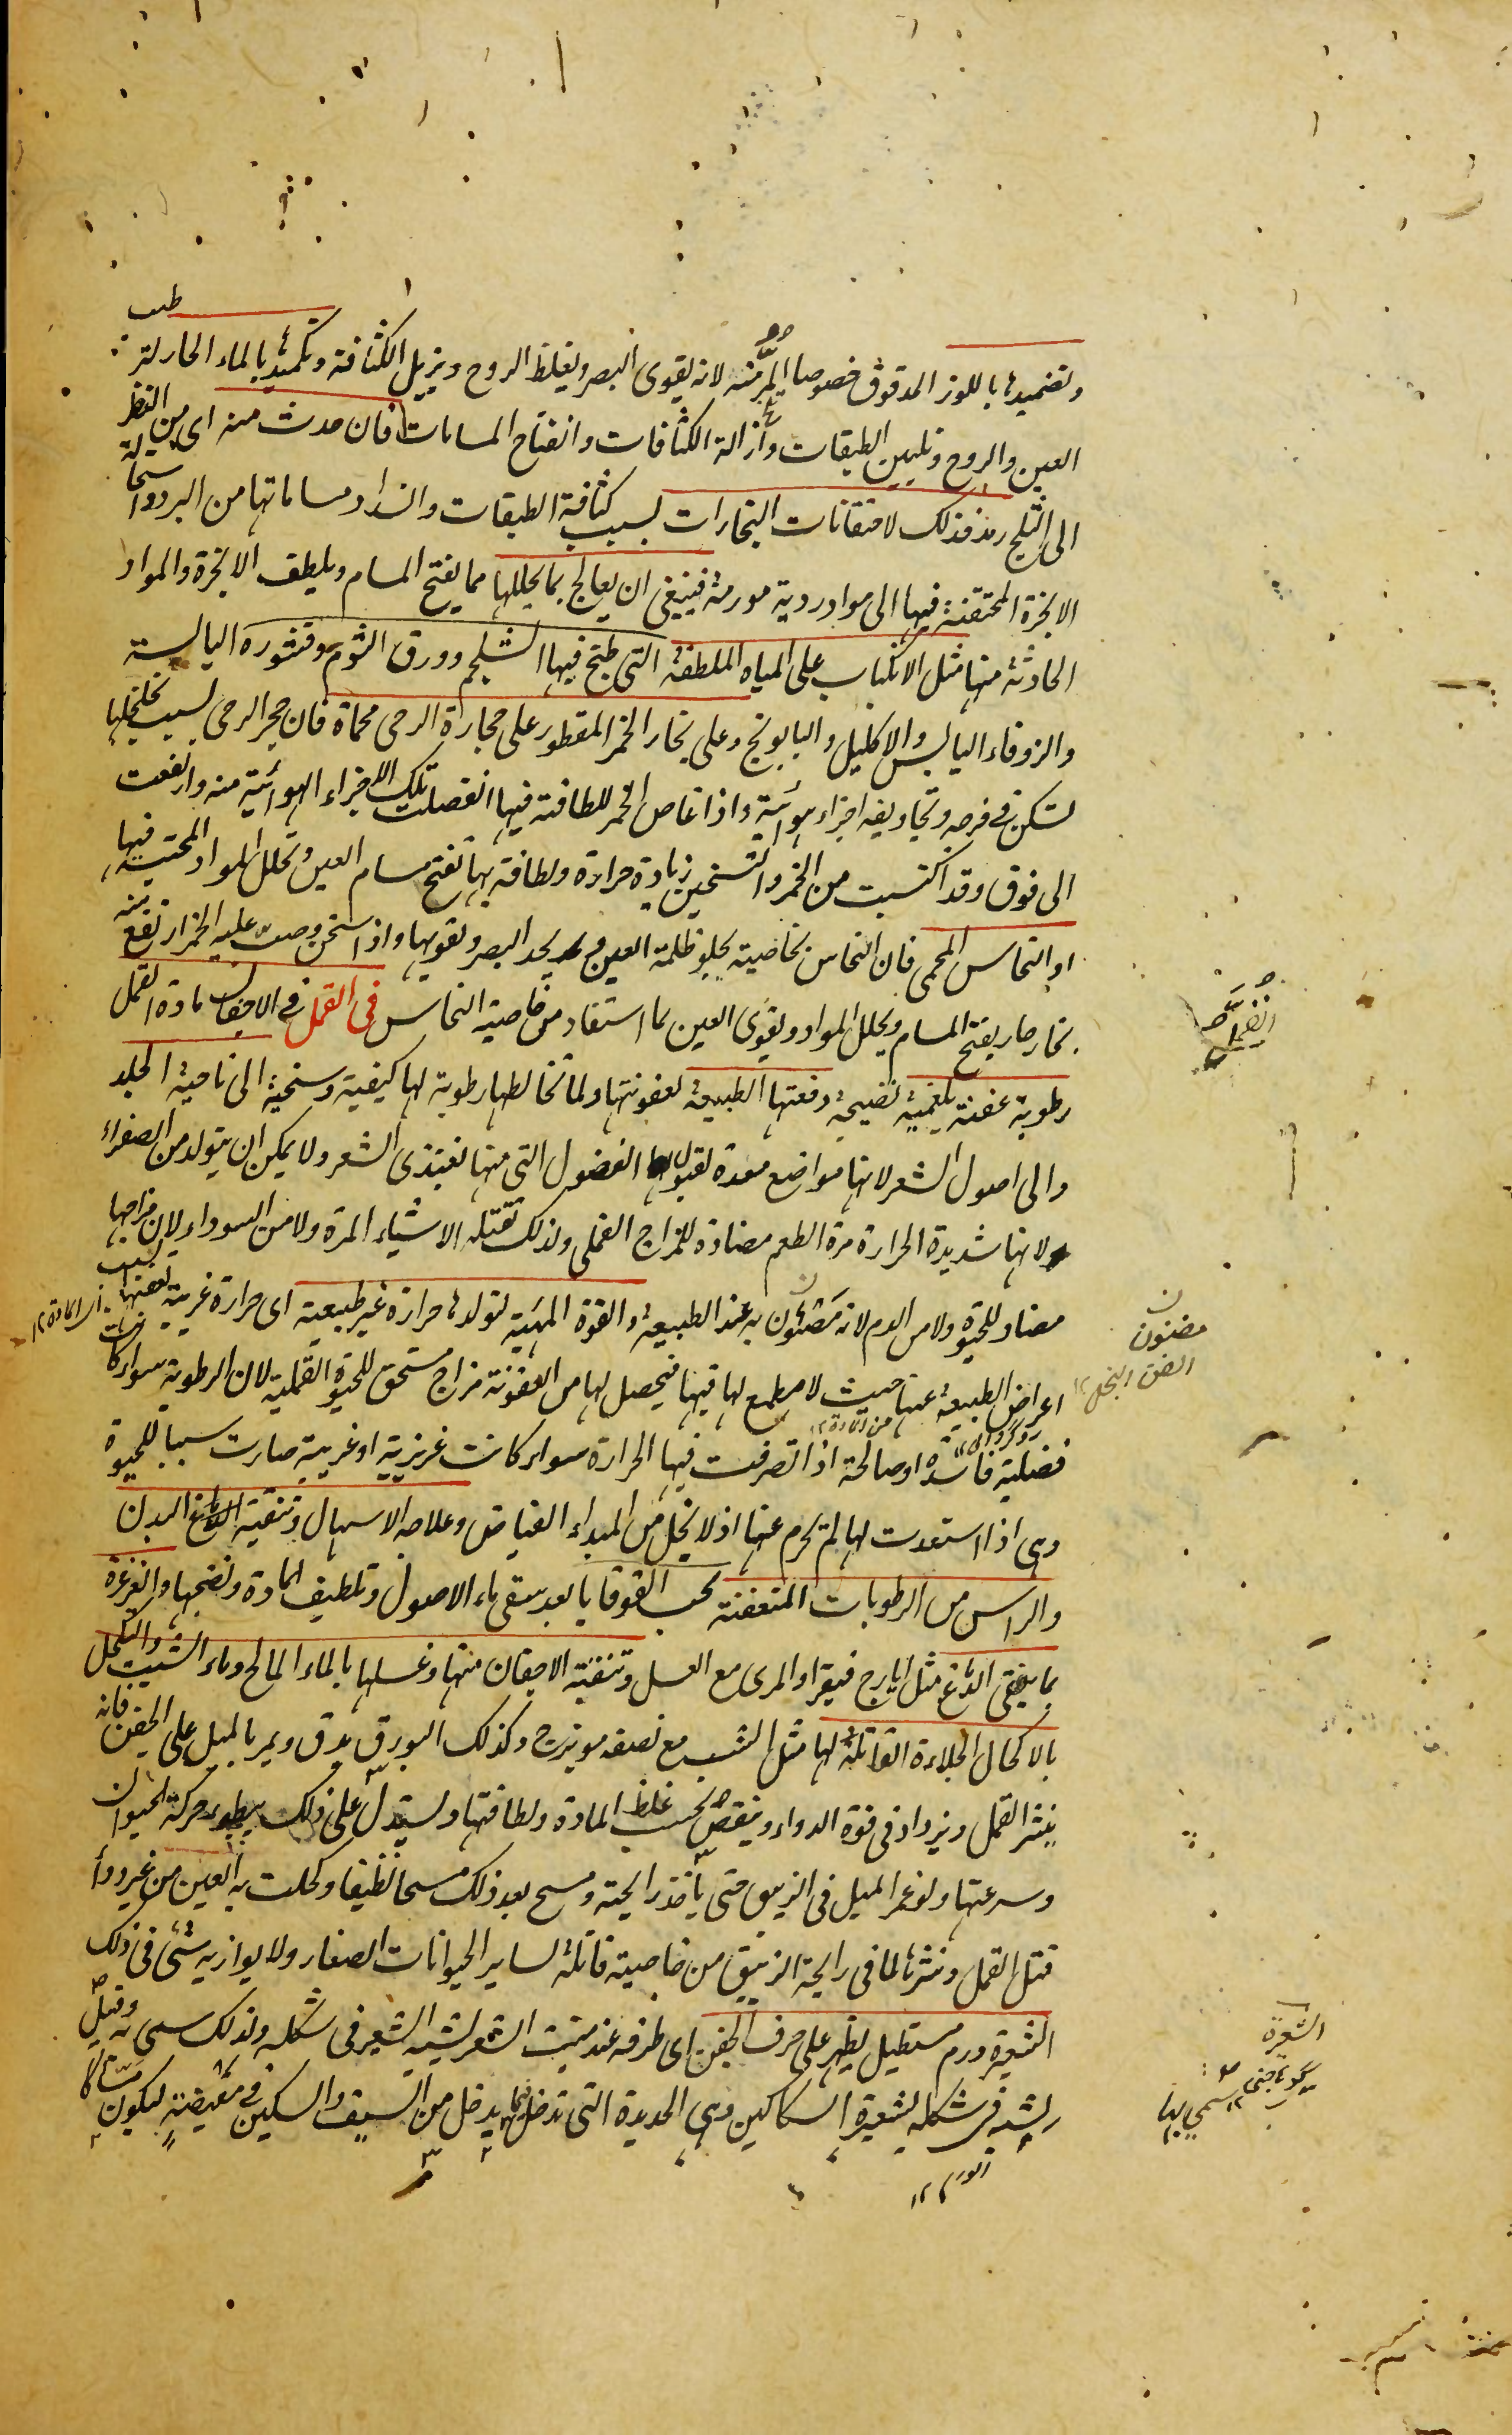 وتضميدها باللوز المدقوق خصوصا المر منه لانه يقوى البصر ويغلظ الروح ويزيل الكثافة وتكميدها بالماء الحار لترطيب
العين والروح وتليين الطبقات وازالة الكثافات وانفتاح المسامات فان حدث منه اى من النظر
الى الثلج رمد فذلك لاحتقانات البخارات بسبب كثافة الطبقات وانسداد مساماتها من البرد واستحالة
الابخرة المحتقنة فيها الى مواد ردية مورمة فينبغى ان يعالج بما يحللها مما يفتح المسام ويلطف الابخرة والمواد
الحادثة منها مثل الانكباب على المياه الملطفة التى طبخ فيها الشلجم وورق الثوم وقشوره اليابسة
والزوفاء اليابس والاكليل والبابونج وعلى بخار الخمر المقطور على حجارة الرحى محماة فان حجر الرحى بسبب تخلخلها
تسكن فى فرجه وتجاويفه اجزاء هوائية واذا غاص الخمر للطافته فيها انفصلت تلك الاجزاء الهوائية منه وارتفعت
الى فوق وقد اكتسبت من الخمر والتسخين زيادة حرارة ولطافة بها تفتح مسام العين وتحلل المواد المحتبسة فيها
او النحاس المحمى فان النحاس بخاصيته يجلو ظلمة العين ويحد البصر ويقويها واذا سخن وصب عليه الخمر ارتفع منه
بخار حار يفتح المسام ويحلل المواد ويقوى العين بما استفاد من خاصية النحاس فى القمل فى الاجفان مادة القمل
رطوبة عفنة بلغمية نضيجة دفعتها الطبيعة لعفونتها ولما تخالطها رطوبة لها كيفية وسخية الى ناحية الجلد
والى اصول الشعر لانها مواضع معدة لقبول الفضول التى منها يغتذى الشعر ولا يمكن ان يتولد من الصفراء
لانها شديدة الحرارة مرة الطعم مضادة للمزاج القملى ولذلك تقتله الاشياء المرة ولا من السوداء لان مزاجها
مضاد للحيوة ولا من الدم لانه مضنون به عند الطبيعة والقوة المهيئة لتولدها حرارة غير طبيعية اى حرارة غريبة تعفنها بسبب
اى المادة ١٢
اعراض الطبيعة عنها حيث لا مطمع لها فيها فيحصل لها من العفونة مزاج مستحق للحيوة القملية لان الرطوبة سواء كانت
فضلية فاسدة او صالحة اذا تصرفت فيها الحرارة سواء كانت غريزية او غريبة صارت سببا للحيوة
وهى اذا استعدت لها لم تحرم عنها اذ لا بخل من المبداء الفياض وعلاجه الاسهال وتنقية البدن
والراس من الرطوبات المتعفنة بحب القوقايا بعد سقى ماء الاصول وتلطيف المادة ونضجها والغرغرة
بما ينقى الدماغ مثل ايارج فيقرا والمرى مع العسل وتنقية الاجفان منها وغسلها بالماء المالح وماء الشبت والتكحل
بالاكحال الجلاءة القاتلة لها مثل الشب مع نصفه مويزج وكذلك البورق يدق ويمر بالميل على الجفن فانه
ينثر القمل ويزداد فى قوة الدواء وينقص بحسب غلظ المادة ولطافتها ويستدل على ذلك ببطوء حركة الحيوان
وسرعتها ولو غمر الميل فى الزيبق حتى يأخذ رايحته ومسح بعد ذلك مسحا نظيفا وكحلت به العين من غير دواء
قتل القمل ونثرها لما فى رايحة الزيبق من خاصية قاتلة لساير الحيوانات الصغار ولا يوازيه شئ فى ذلك
الشعيرة ورم مستطيل يظهر على حرف الجفن اى طرفه عند منبت الشعر يشبه الشعير فى شكله ولذلك سمى به وقيل
يشبه فى شكله لشعيرة السكاكين وهى الحديدة التى تدخل فيما يدخل من السيف والسكين فى مقبضته ليكون مساكا
مضنون
الضن البخل ١٢
الشعيرة